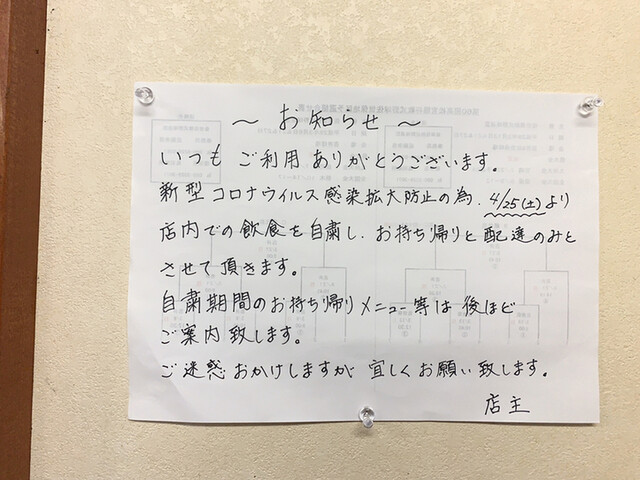 ～ お知らせ ～
いつも ご利用 ありがとうございます。
新型コロナウイルス感染拡大防止の為、4/25(土)より
店内での飲食を自粛し、お持ち帰りと配達のみと
させて頂きます。
自粛期間のお持ち帰りメニュー等は後ほど
ご案内致します。
ご迷惑おかけしますが 宜しくお願い致します。
店主